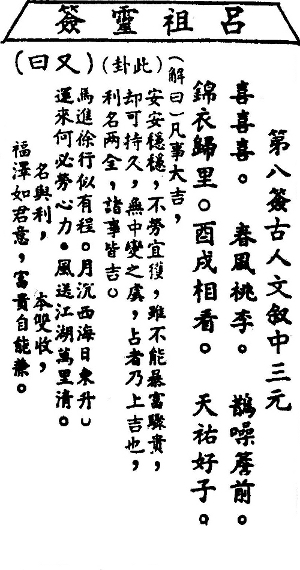 呂祖靈簽
第八簽古人文叙中三元
喜喜喜。春風桃李。鵲噪簷前。
錦衣歸里。酉戌相看。天祐好子。
(解曰)凡事大吉,
(此卦)
安安穩穩,不勞宜獲,雖不能暴富驟貴,
却可持久,無中變之虞,占者乃上吉也,
利名兩全,諸事皆吉。
(又曰)
馬進徐行似有程。月沉西海日東升。
運來何必勞心力。風送江湖萬里清。
名與利,本雙收,
福澤如君意,富貴自能兼。